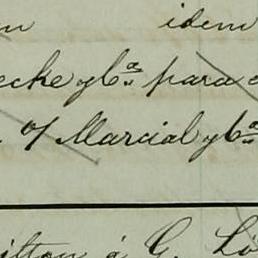 idem
ecke y Ca para
% Marcial y Ca
ilton á G. Ló